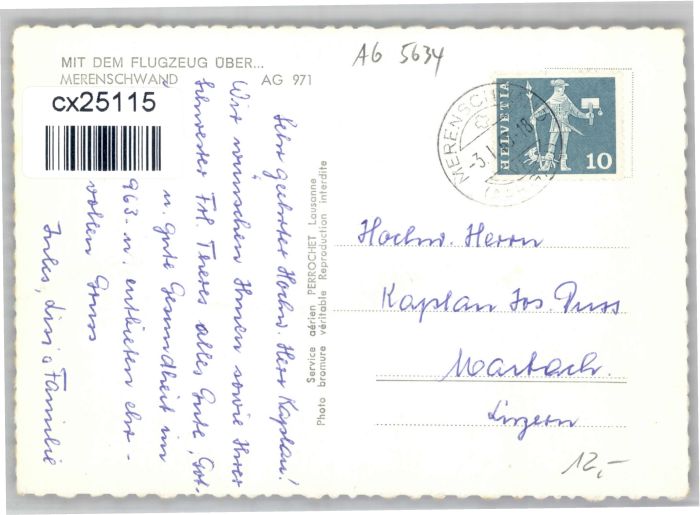 MIT DEM FLUGZEUG ÜBER...
MERENSCHWAND AG 971
AG 5634
cx25115
MERENSCH
-3.1.
-18
HELVETIA
10
Sehr geehrter Hochw. Herr Kaplan!
Wir wünschen Ihnen sowie Ihrer
Schwester Frl. Teres alles Gute, Got-
u. gute Gesundheit im
963. u. entbieten ehr-
vollen Gruss
Jules, Familie
Service aérien PERROCHET Lausanne
Photo bromure véritable Reproduction interdite
Hochw. Herrn
Kaplan Jos. Puss
Marbach.
Luzern
12,-